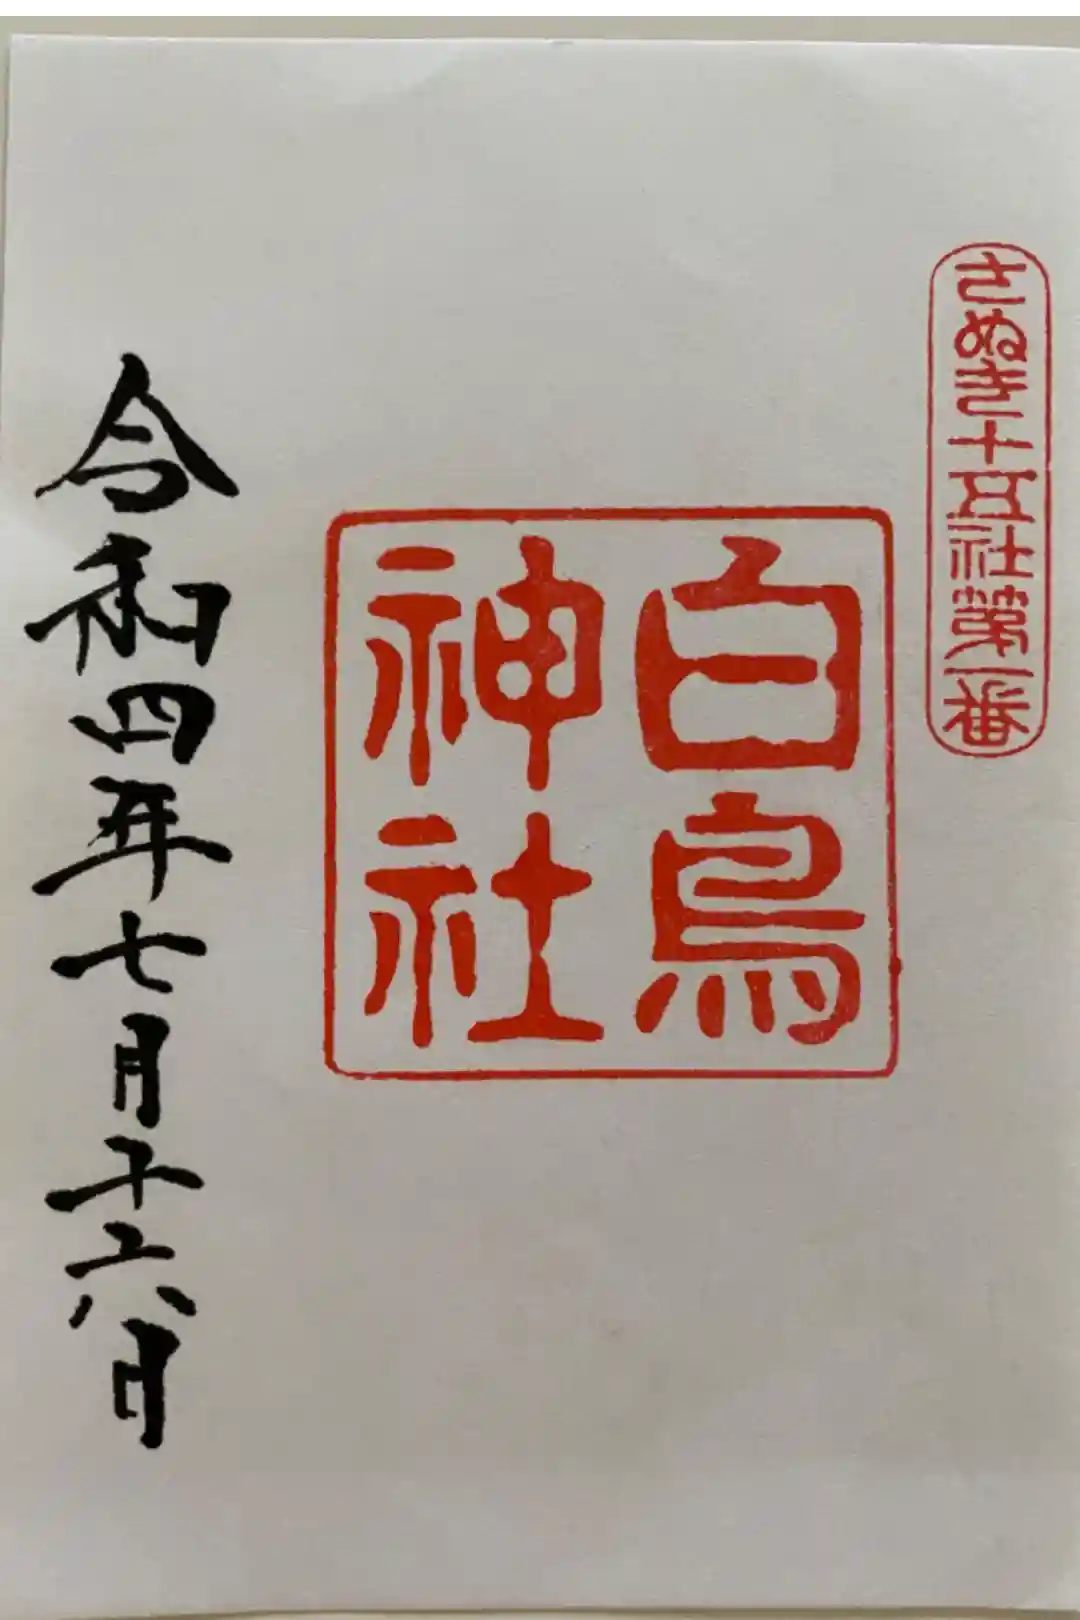 さぬき十五社第一番
白鳥
神社
令和四年七月十六日